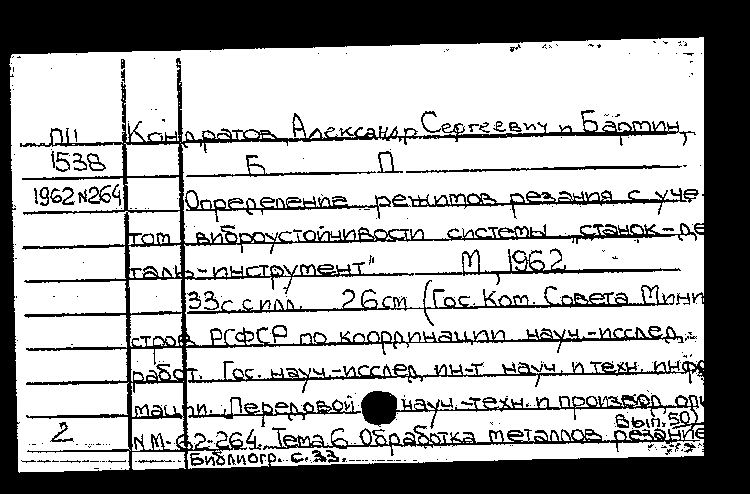 ПП Кондратов, Александр Сергеевич и Бартин,
1538 Б П
1962 N264 Определение режимов резания с уче-
том виброустойчивости системы „станок-де
таль-инструмент" М, 1962
33с. с илл. 26 см (Гос. Ком. Совета Мини
стров РСФСР по координации науч.-исслед.
работ. Гос. науч.-исслед. ин-т науч. и техн. инфо
мации. Передовой науч.-техн. и производ. опы
Вып. 50)
2 N М-62-264. Тема 6 Обработка металлов резание
Библиогр. с. 33.